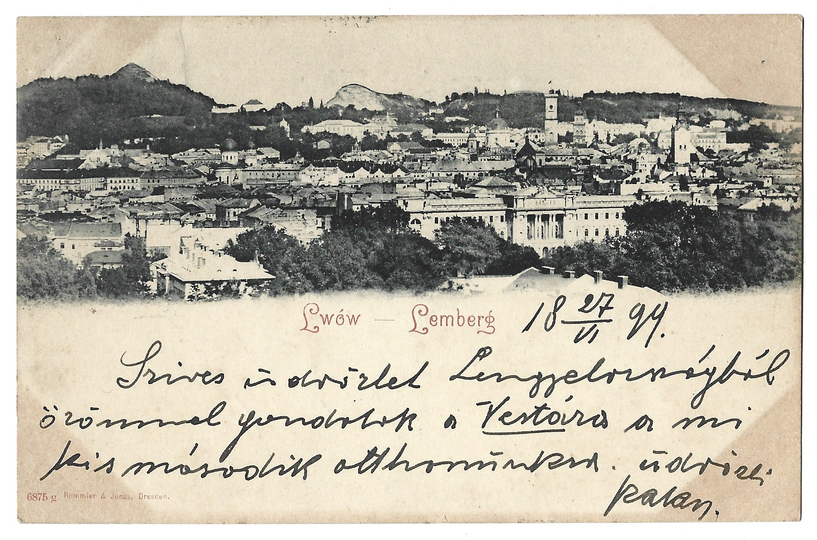 Lwów — Lemberg
18 27/VI 99.
Szives üdvözlet Lengyelországból
örömmel gondolok a Vestára a mi
kis második otthonunkra. üdvözli
Kalan.
6875 g Rommler & Jonas, Dresden.